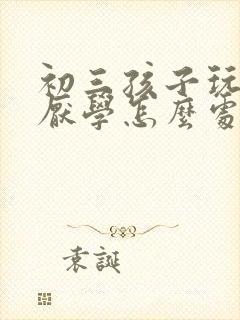 初三孩子玩
厭學怎麼處
袁誕